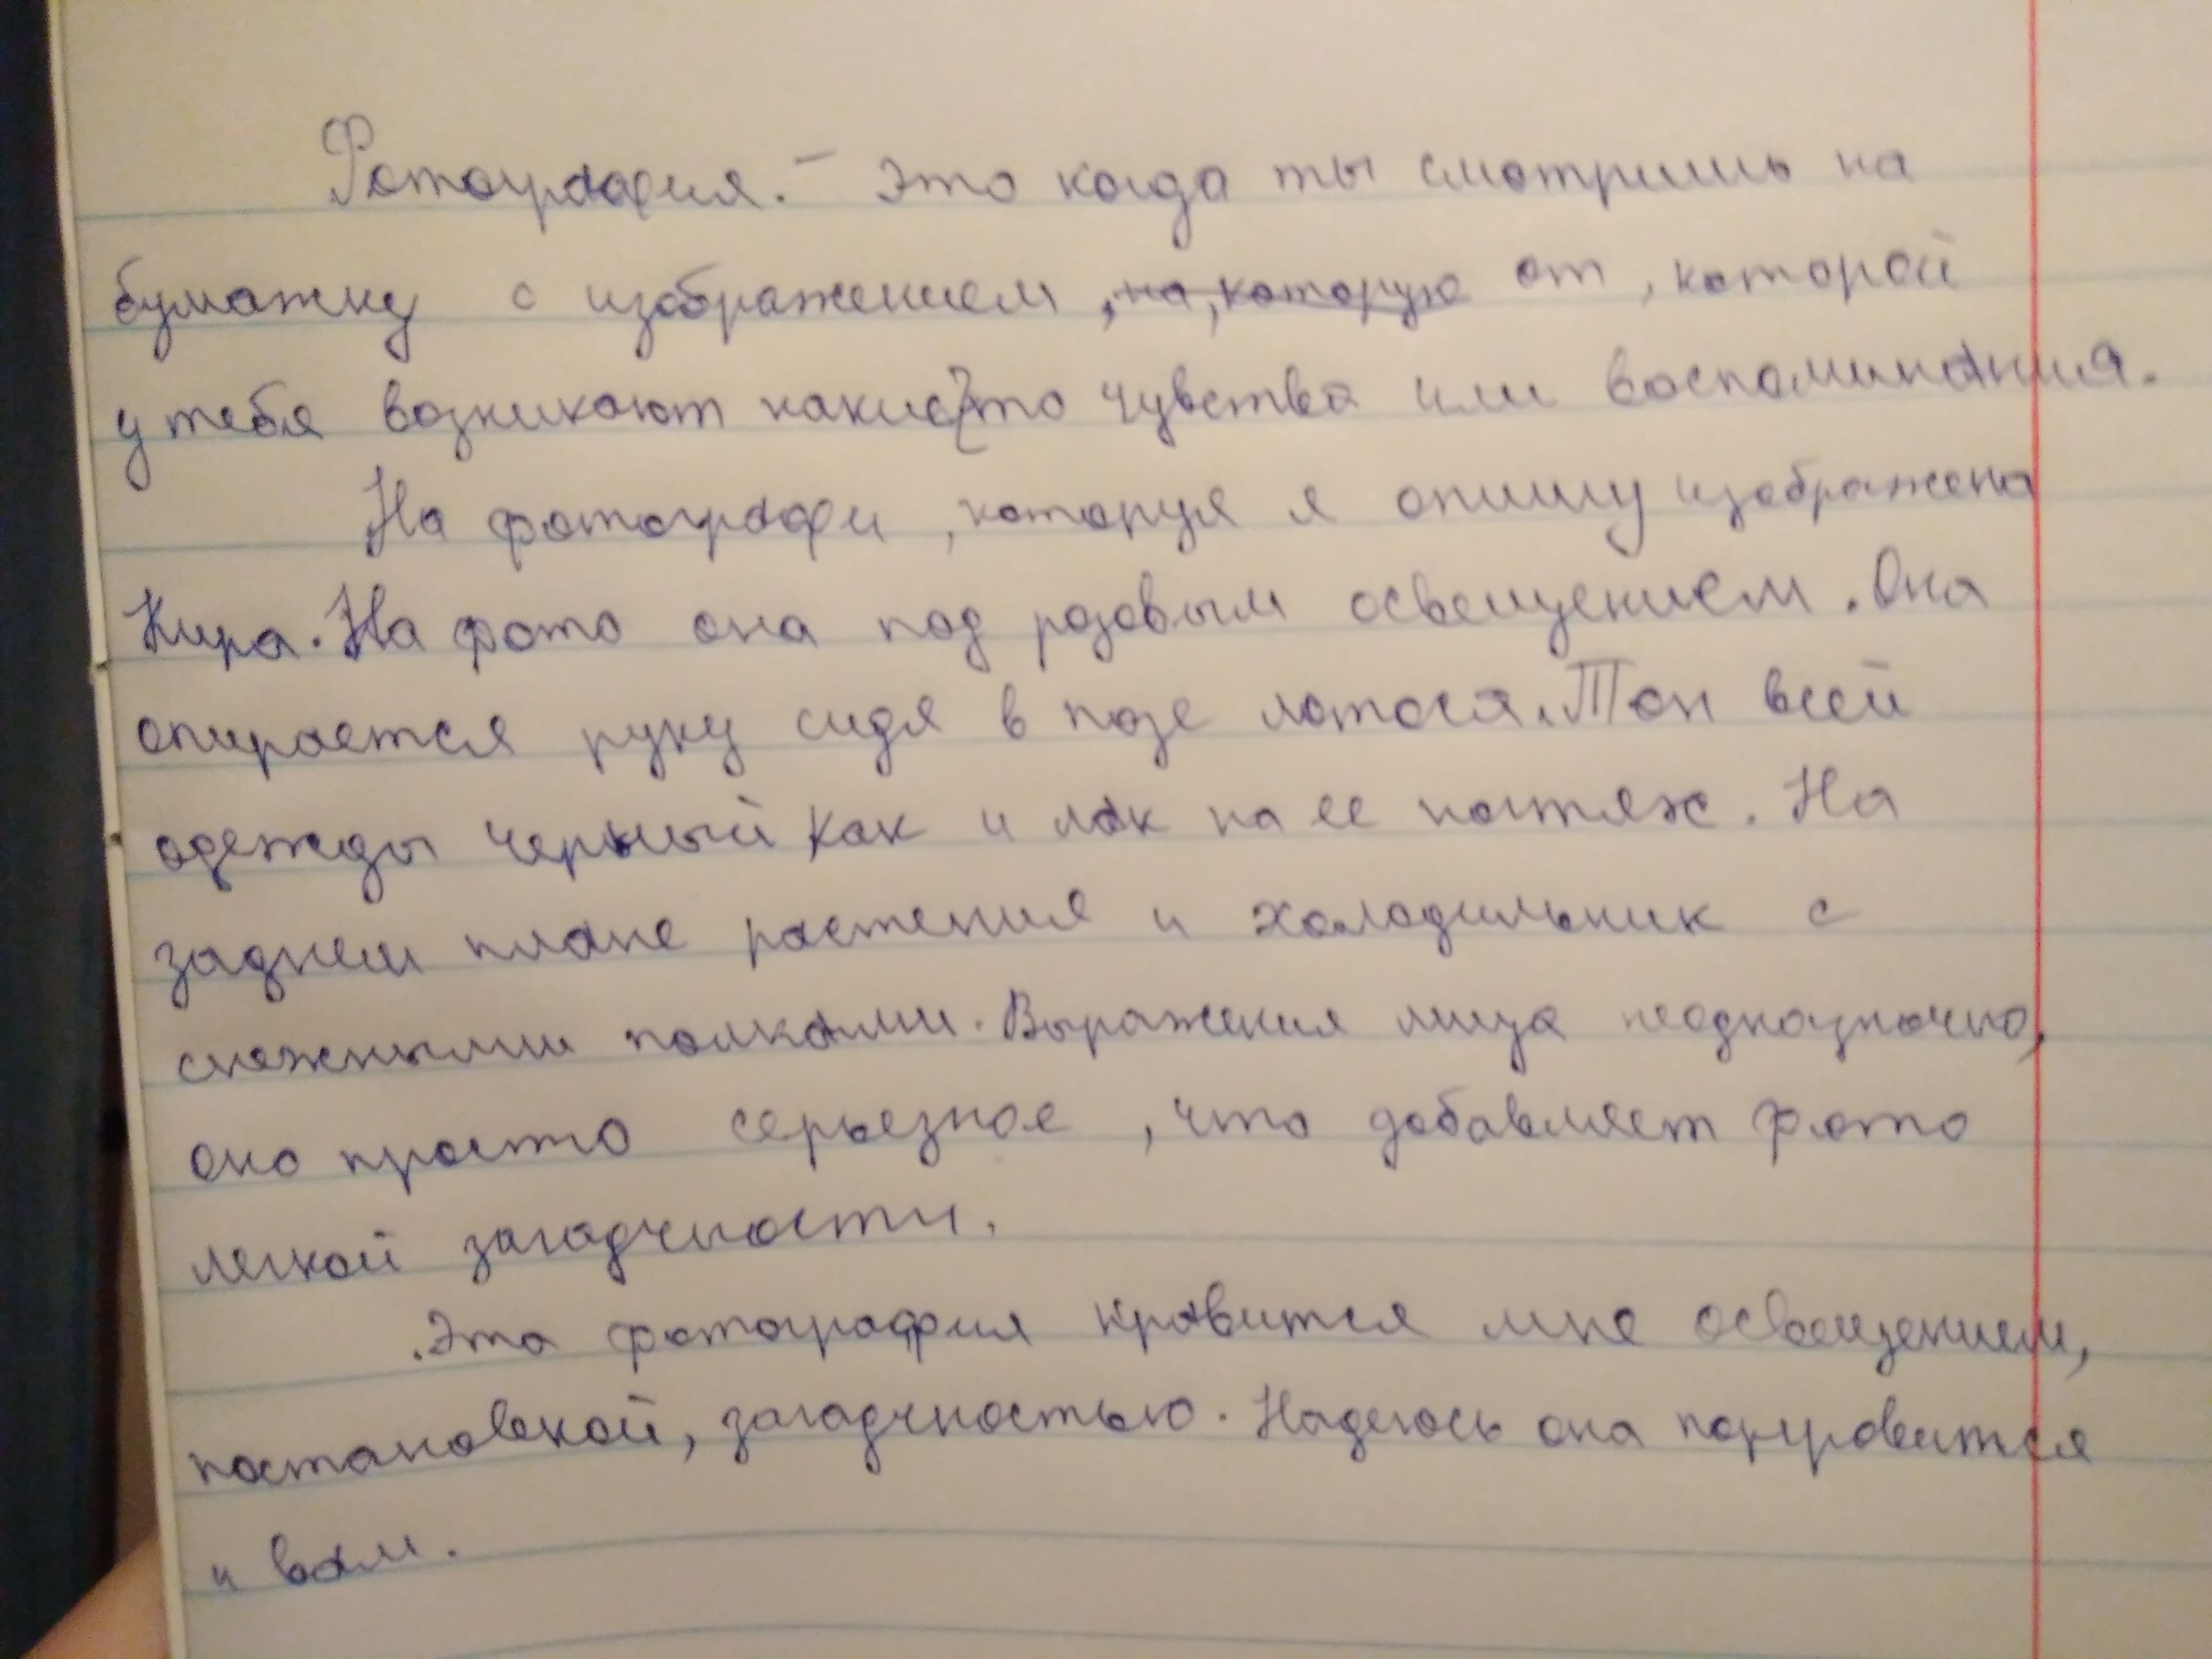 Фотография. - это когда ты смотришь на
бумажку с изображением, на, которую от, которой
у тебя возникают какие то чувства или воспоминания.
На фотографи, которуя я опишу изображена
Кира. На фото она под розовым освещением. Она
опирается руку сидя в позе лотося. Тон всей
одежды черный как и лак на ее ногтях. На
заднем плане растения и холодильник с
смежными полками. Выражения лица неоднозначно,
оно просто серьезное, что добавляет фото
легкой загадчности.
Эта фотография нравится мне освещением,
постановкой, загадчностью. Надеюсь она понравится
и вам.